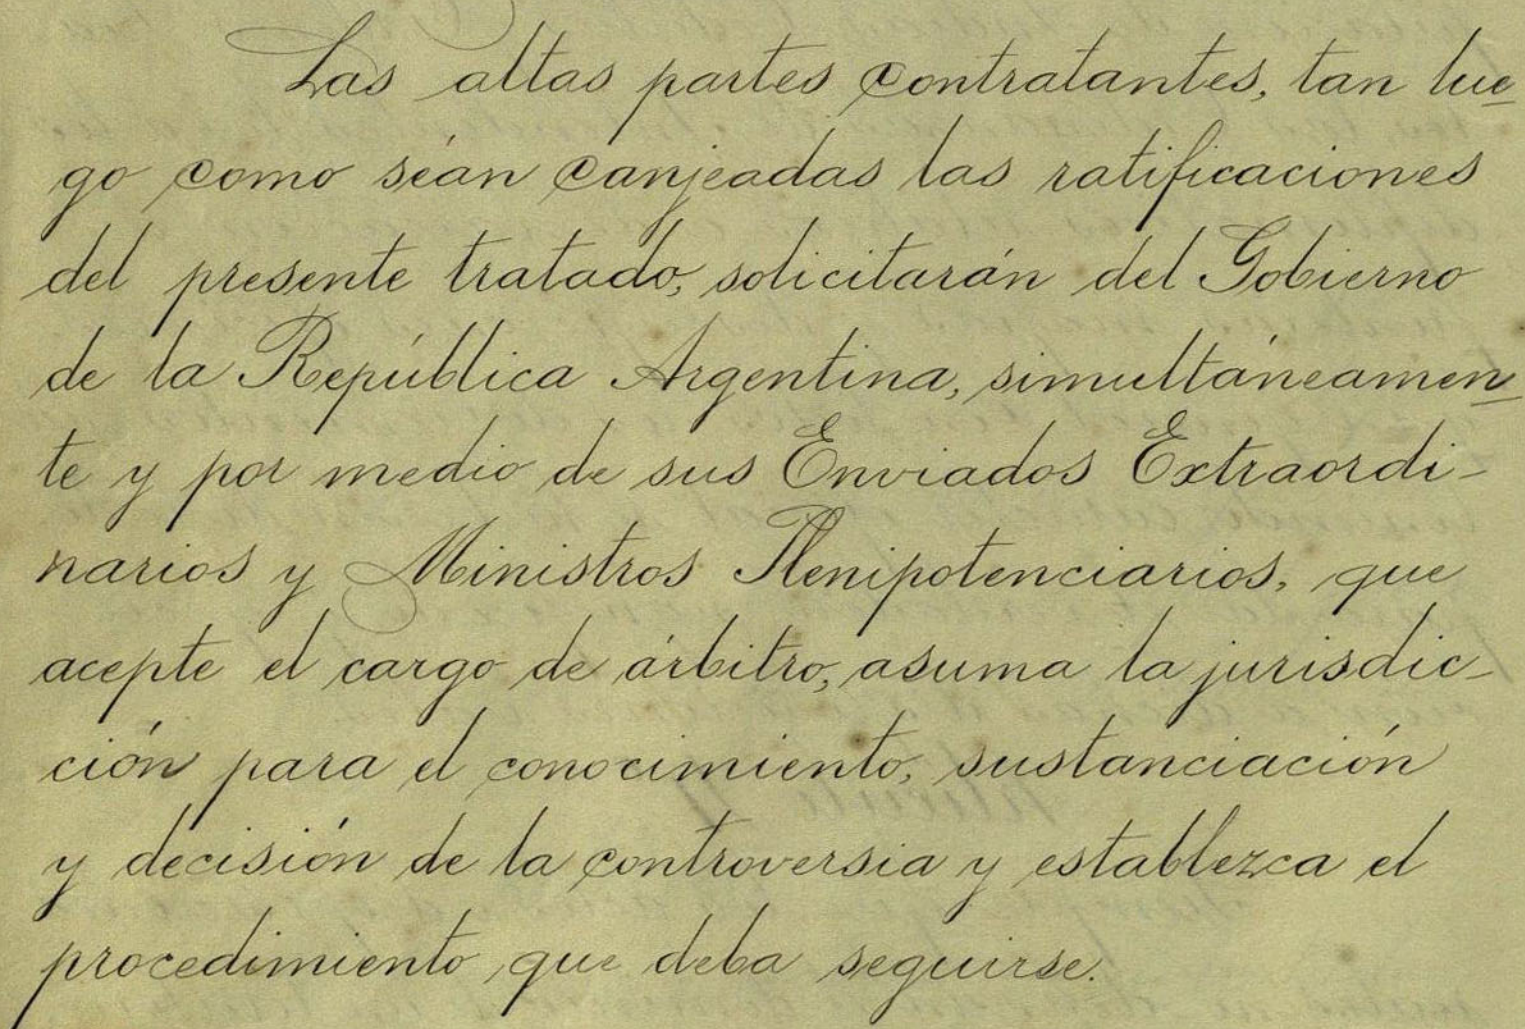 Las altas partes contratantes, tan lue-
go como séan canjeadas las ratificaciones
del presente tratado, solicitarán del Gobierno
de la República Argentina, simultáneamen-
te y por medio de sus Enviados Extraordi-
narios y Ministros Plenipotenciarios, que
acepte el cargo de árbitro, asuma la jurisdic-
ción para el conocimiento, sustanciación
y decisión de la controversia y establezca el
procedimiento que deba seguirse.